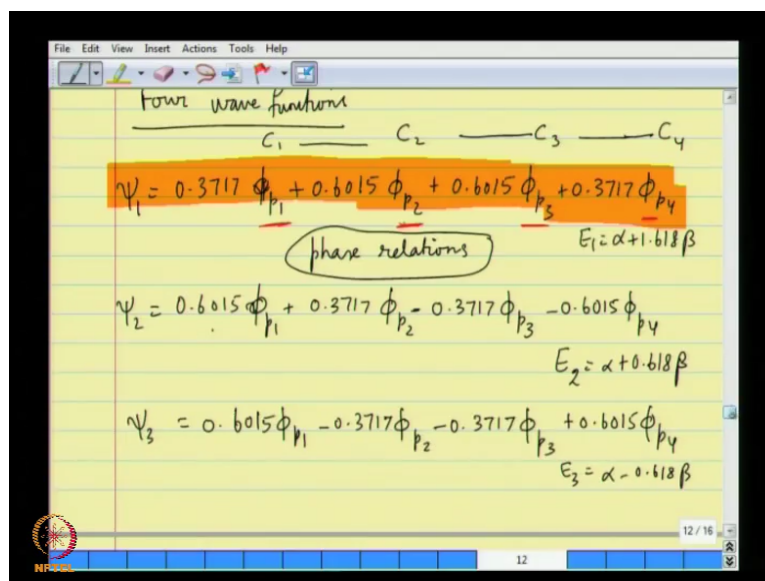 File Edit View Insert Actions Tools Help
Four wave functions
C₁ —— C₂ —— C₃ —— C₄
Ψ₁ = 0.3717 ϕ_p₁ + 0.6015 ϕ_p₂ + 0.6015 ϕ_p₃ + 0.3717 ϕ_p₄
phase relations
E₁ = α + 1.618 β
Ψ₂ = 0.6015 ϕ_p₁ + 0.3717 ϕ_p₂ - 0.3717 ϕ_p₃ - 0.6015 ϕ_p₄
E₂ = α + 0.618 β
Ψ₃ = 0.6015 ϕ_p₁ - 0.3717 ϕ_p₂ - 0.3717 ϕ_p₃ + 0.6015 ϕ_p₄
E₃ = α - 0.618 β
12 / 16
12
NPTEL